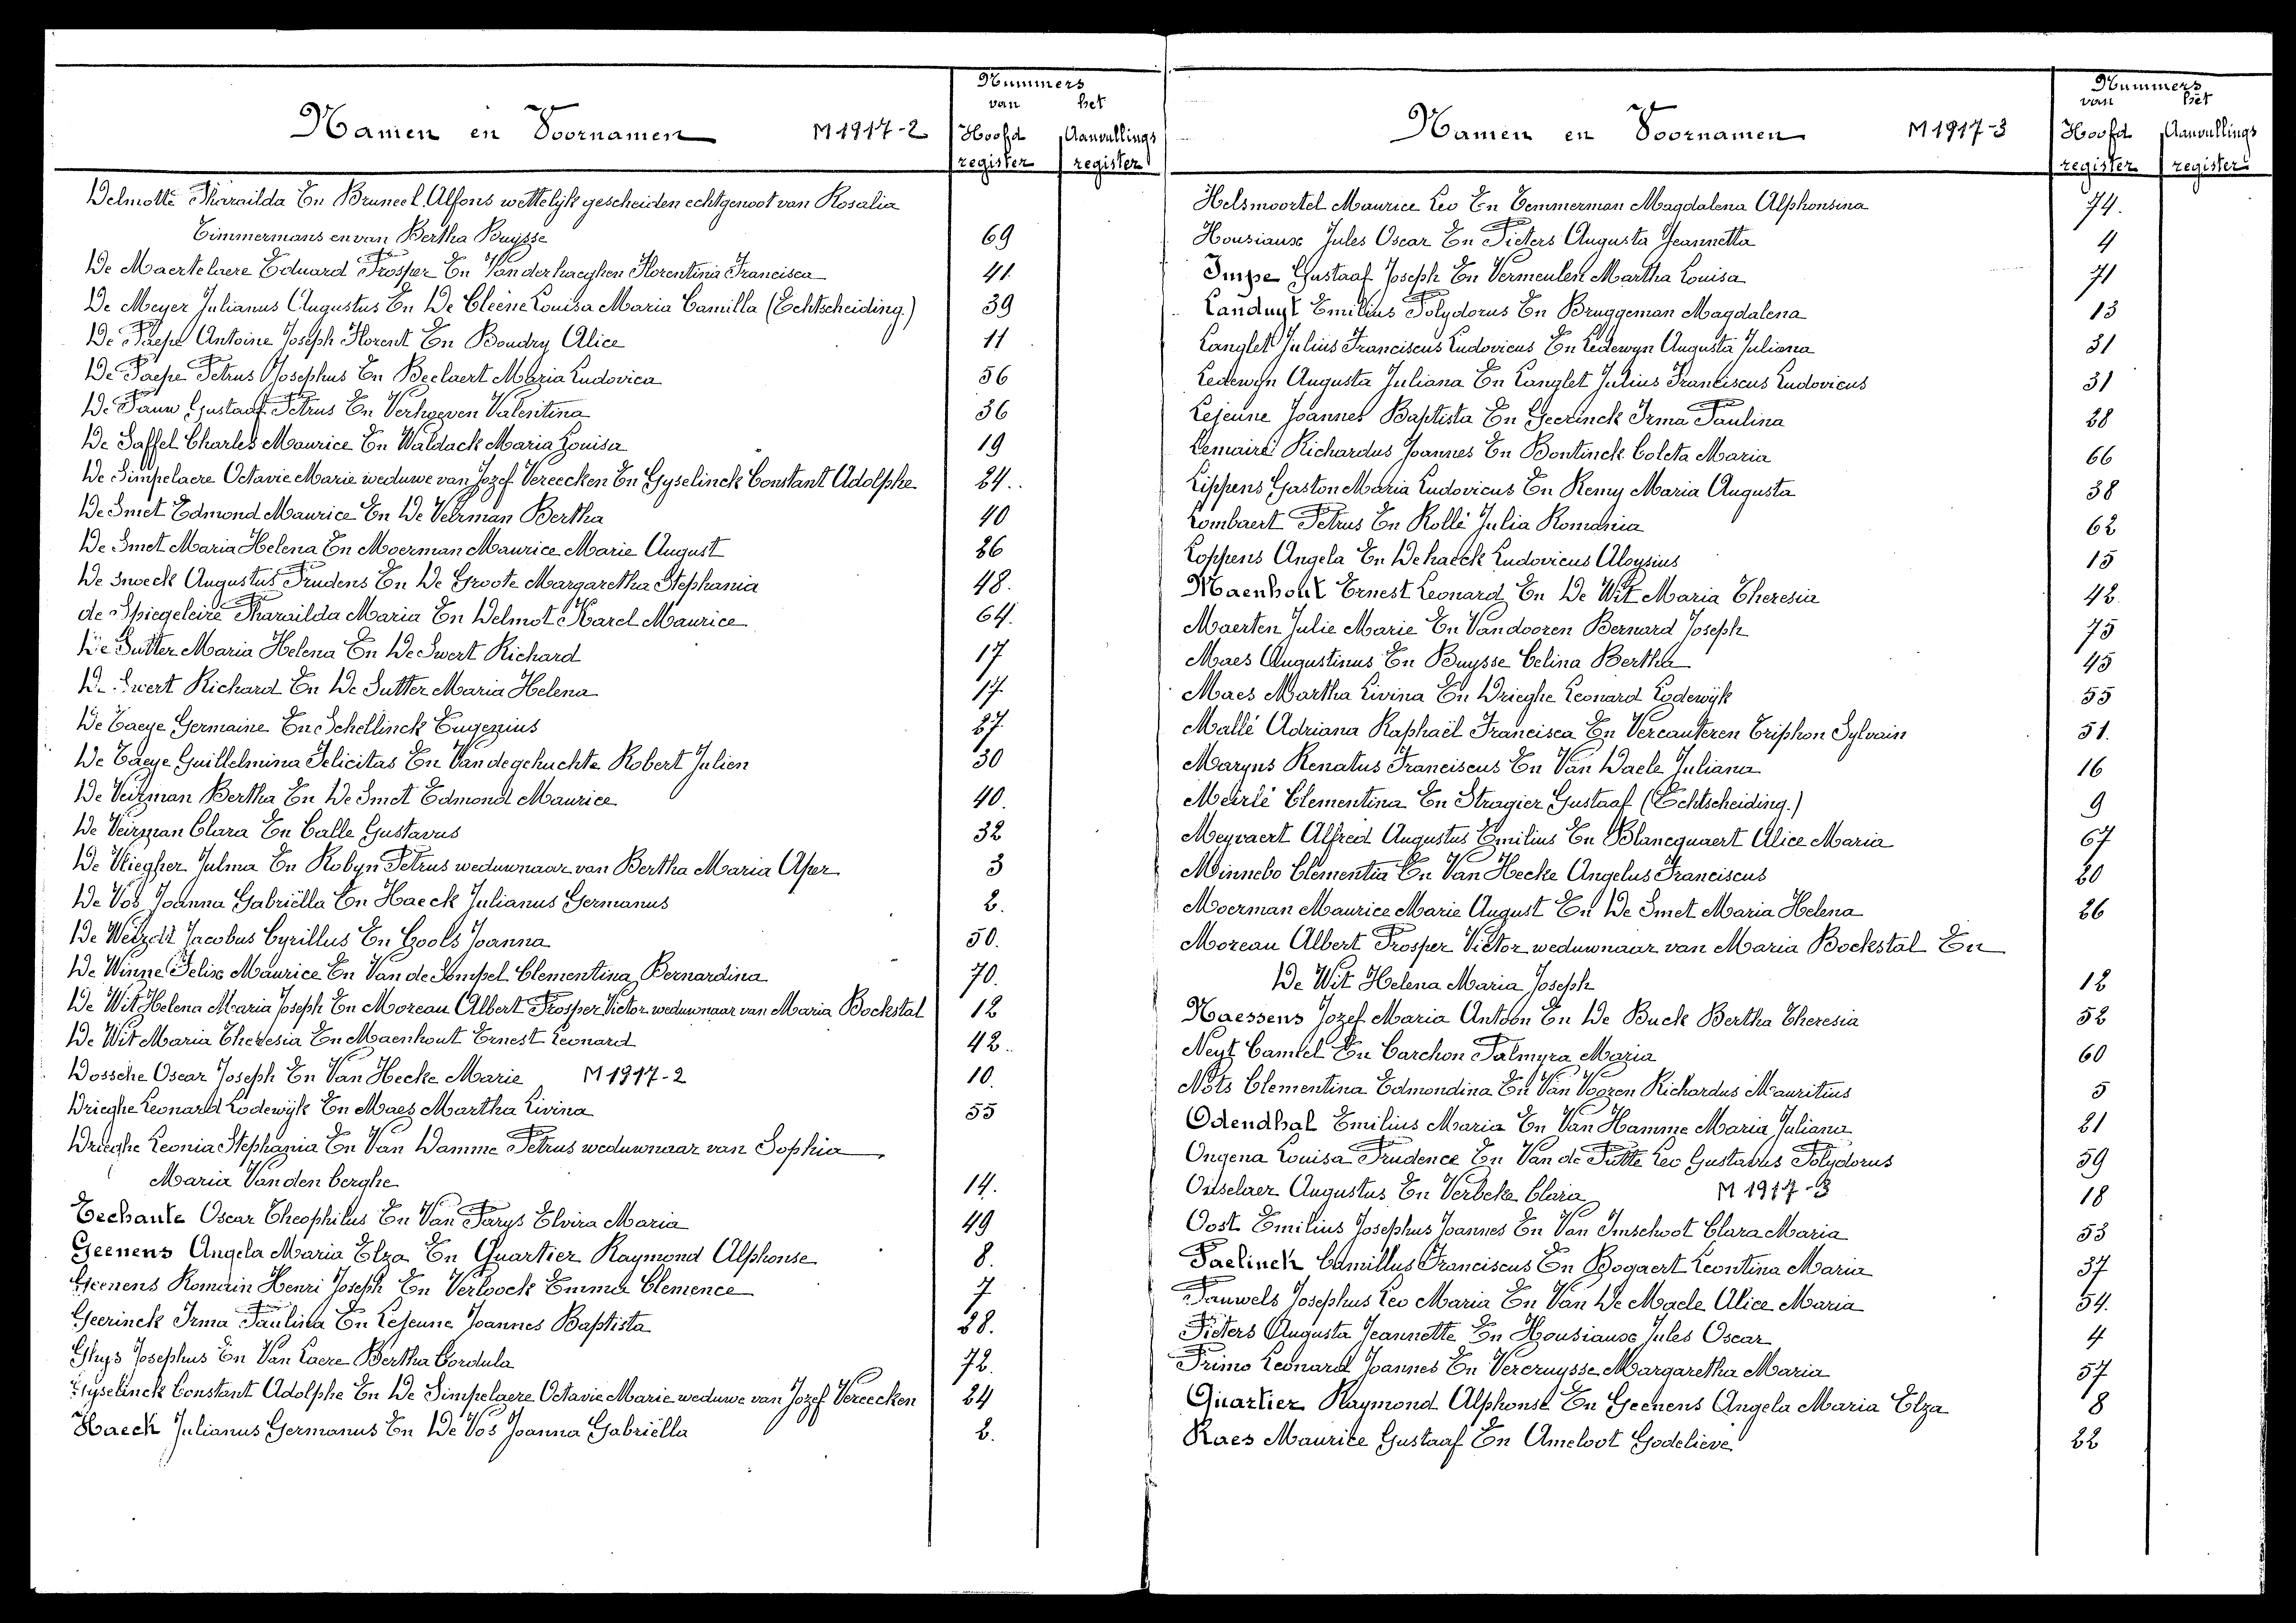 Namen en Voornamen M 1917-2
Nummers
van het
Hoofd Aanvullings
register register
Delmotte Tharailda En Bruneel Alfons wettelijk gescheiden echtgenoot van Rosalia
Timmermans en van Bertha Buysse 69
De Maertelaere Eduard Prosper En Vanderhaeghen Florentina Francisca 41
De Meyer Julianus Augustus En De Cleene Louisa Maria Camilla (Echtscheiding) 39
De Paepe Antoine Joseph Florent En Boudry Alice 11
De Paepe Petrus Josephus En Beelaert Maria Ludovica 56
De Pauw Gustaaf Petrus En Verhoeven Valentina 36
De Saffel Charles Maurice En Waldack Maria Louisa 19
De Simpelaere Octavie Marie weduwe van Jozef Vereecken En Gyselinck Constant Adolphe 24.
De Smet Edmond Maurice En De Veirman Bertha 40
De Smet Maria Helena En Moerman Maurice Marie August 26
De Snoeck Augustus Prudens En De Groote Margaretha Stephania 48.
de Spiegeleire Tharailda Maria En Delmot Karel Maurice 64.
De Sutter Maria Helena En De Swert Richard 17
De Swert Richard En De Sutter Maria Helena 17
De Taeye Germaine En Schellinck Eugenius 27
De Taeye Guillelmina Felicitas En Vandegehuchte Robert Julien 30
De Veirman Bertha En De Smet Edmond Maurice 40.
De Veirman Clara En Calle Gustavus 32
De Vliegher Julma En Robyn Petrus weduwnaar van Bertha Maria Aper 3
De Vos Joanna Gabriëlla En Haeck Julianus Germanus 2.
De Weirdt Jacobus Cyrillus En Cools Joanna 50.
De Winne Felix Maurice En Van de Sompel Clementina Bernardina 70.
De Wit Helena Maria Joseph En Moreau Albert Prosper Victor weduwnaar van Maria Bockstal 12
De Wit Maria Theresia En Maenhout Ernest Leonard 42.
Dossche Oscar Joseph En Van Hecke Marie M 1917-2 10.
Drieghe Leonard Lodewijk En Maes Martha Livina 55
Drieghe Leonia Stephania En Van Damme Petrus weduwnaar van Sophia
Maria Vanden berghe 14.
Eechaute Oscar Theophilus En Van Parys Elvira Maria 49
Geenens Angela Maria Elza En Quartier Raymond Alphonse 8.
Geenens Romain Henri Joseph En Verloock Emma Clemence 7
Geerinck Irma Paulina En Lejeune Joannes Baptista 28.
Ghys Josephus En Van Laere Bertha Cordula 72.
Gyselinck Constant Adolphe En De Simpelaere Octavie Marie weduwe van Jozef Vereecken 24
Haeck Julianus Germanus En De Vos Joanna Gabriëlla 2.
Namen en Voornamen M 1917-3
Nummers
van het
Hoofd Aanvullings
register register
Helsmoortel Maurice Leo En Temmerman Magdalena Alphonsina 74.
Housiaux Jules Oscar En Pieters Augusta Jeannetta 4
Impe Gustaaf Joseph En Vermeulen Martha Louisa 71
Landuyt Emilius Polydorus En Bruggeman Magdalena 13
Langlet Julius Franciscus Ludovicus En Ledewyn Augusta Juliana 31
Ledewyn Augusta Juliana En Langlet Julius Franciscus Ludovicus 31
Lejeune Joannes Baptista En Geerinck Irma Paulina 28
Lemaire Richardus Joannes En Bontinck Coleta Maria 66
Lippens Gaston Maria Ludovicus En Remy Maria Augusta 38
Lombaert Petrus En Rollé Julia Romania 62
Loppens Angela En Dehaeck Ludovicus Aloysius 15
Maenhout Ernest Leonard En De Wit Maria Theresia 42
Maerten Julie Marie En Vandooren Bernard Joseph 75
Maes Augustinus En Buysse Celina Bertha 45
Maes Martha Livina En Drieghe Leonard Lodewijk 55
Mallé Adriana Raphaël Francisca En Vercauteren Triphon Sylvain 51.
Maryns Renatus Franciscus En Van Daele Juliana 16
Meirlé Clementina En Stragier Gustaaf (Echtscheiding.) 9
Meyvaert Alfred Augustus Emilius En Blancquaert Alice Maria 67
Minnebo Clementia En Van Hecke Angelus Franciscus 20
Moerman Maurice Marie August En De Smet Maria Helena 26
Moreau Albert Prosper Victor weduwnaar van Maria Bockstal En
De Wit Helena Maria Joseph 12
Naessens Jozef Maria Antoon En De Buck Bertha Theresia 52
Neyt Camiel En Carchon Palmyra Maria 60
Nots Clementina Edmondina En Van Vooren Richardus Mauritius 5
Odendhal Emilius Maria En Van Hamme Maria Juliana 21
Ongena Louisa Prudence En Van de Putte Leo Gustavus Polydorus 59
Oitselaer Augustus En Verbeke Clara M 1917-3 18
Oost Emilius Josephus Joannes En Van Imschoot Clara Maria 53
Paelinck Camillus Franciscus En Bogaert Leontina Maria 37
Pauwels Josephus Leo Maria En Van De Maele Alice Maria 54.
Pieters Augusta Jeannette En Housiaux Jules Oscar 4
Primo Leonard Joannes En Vercruysse Margaretha Maria 57
Quartier Raymond Alphonse En Geenens Angela Maria Elza 8
Raes Maurice Gustaaf En Ameloot Godelieve 22